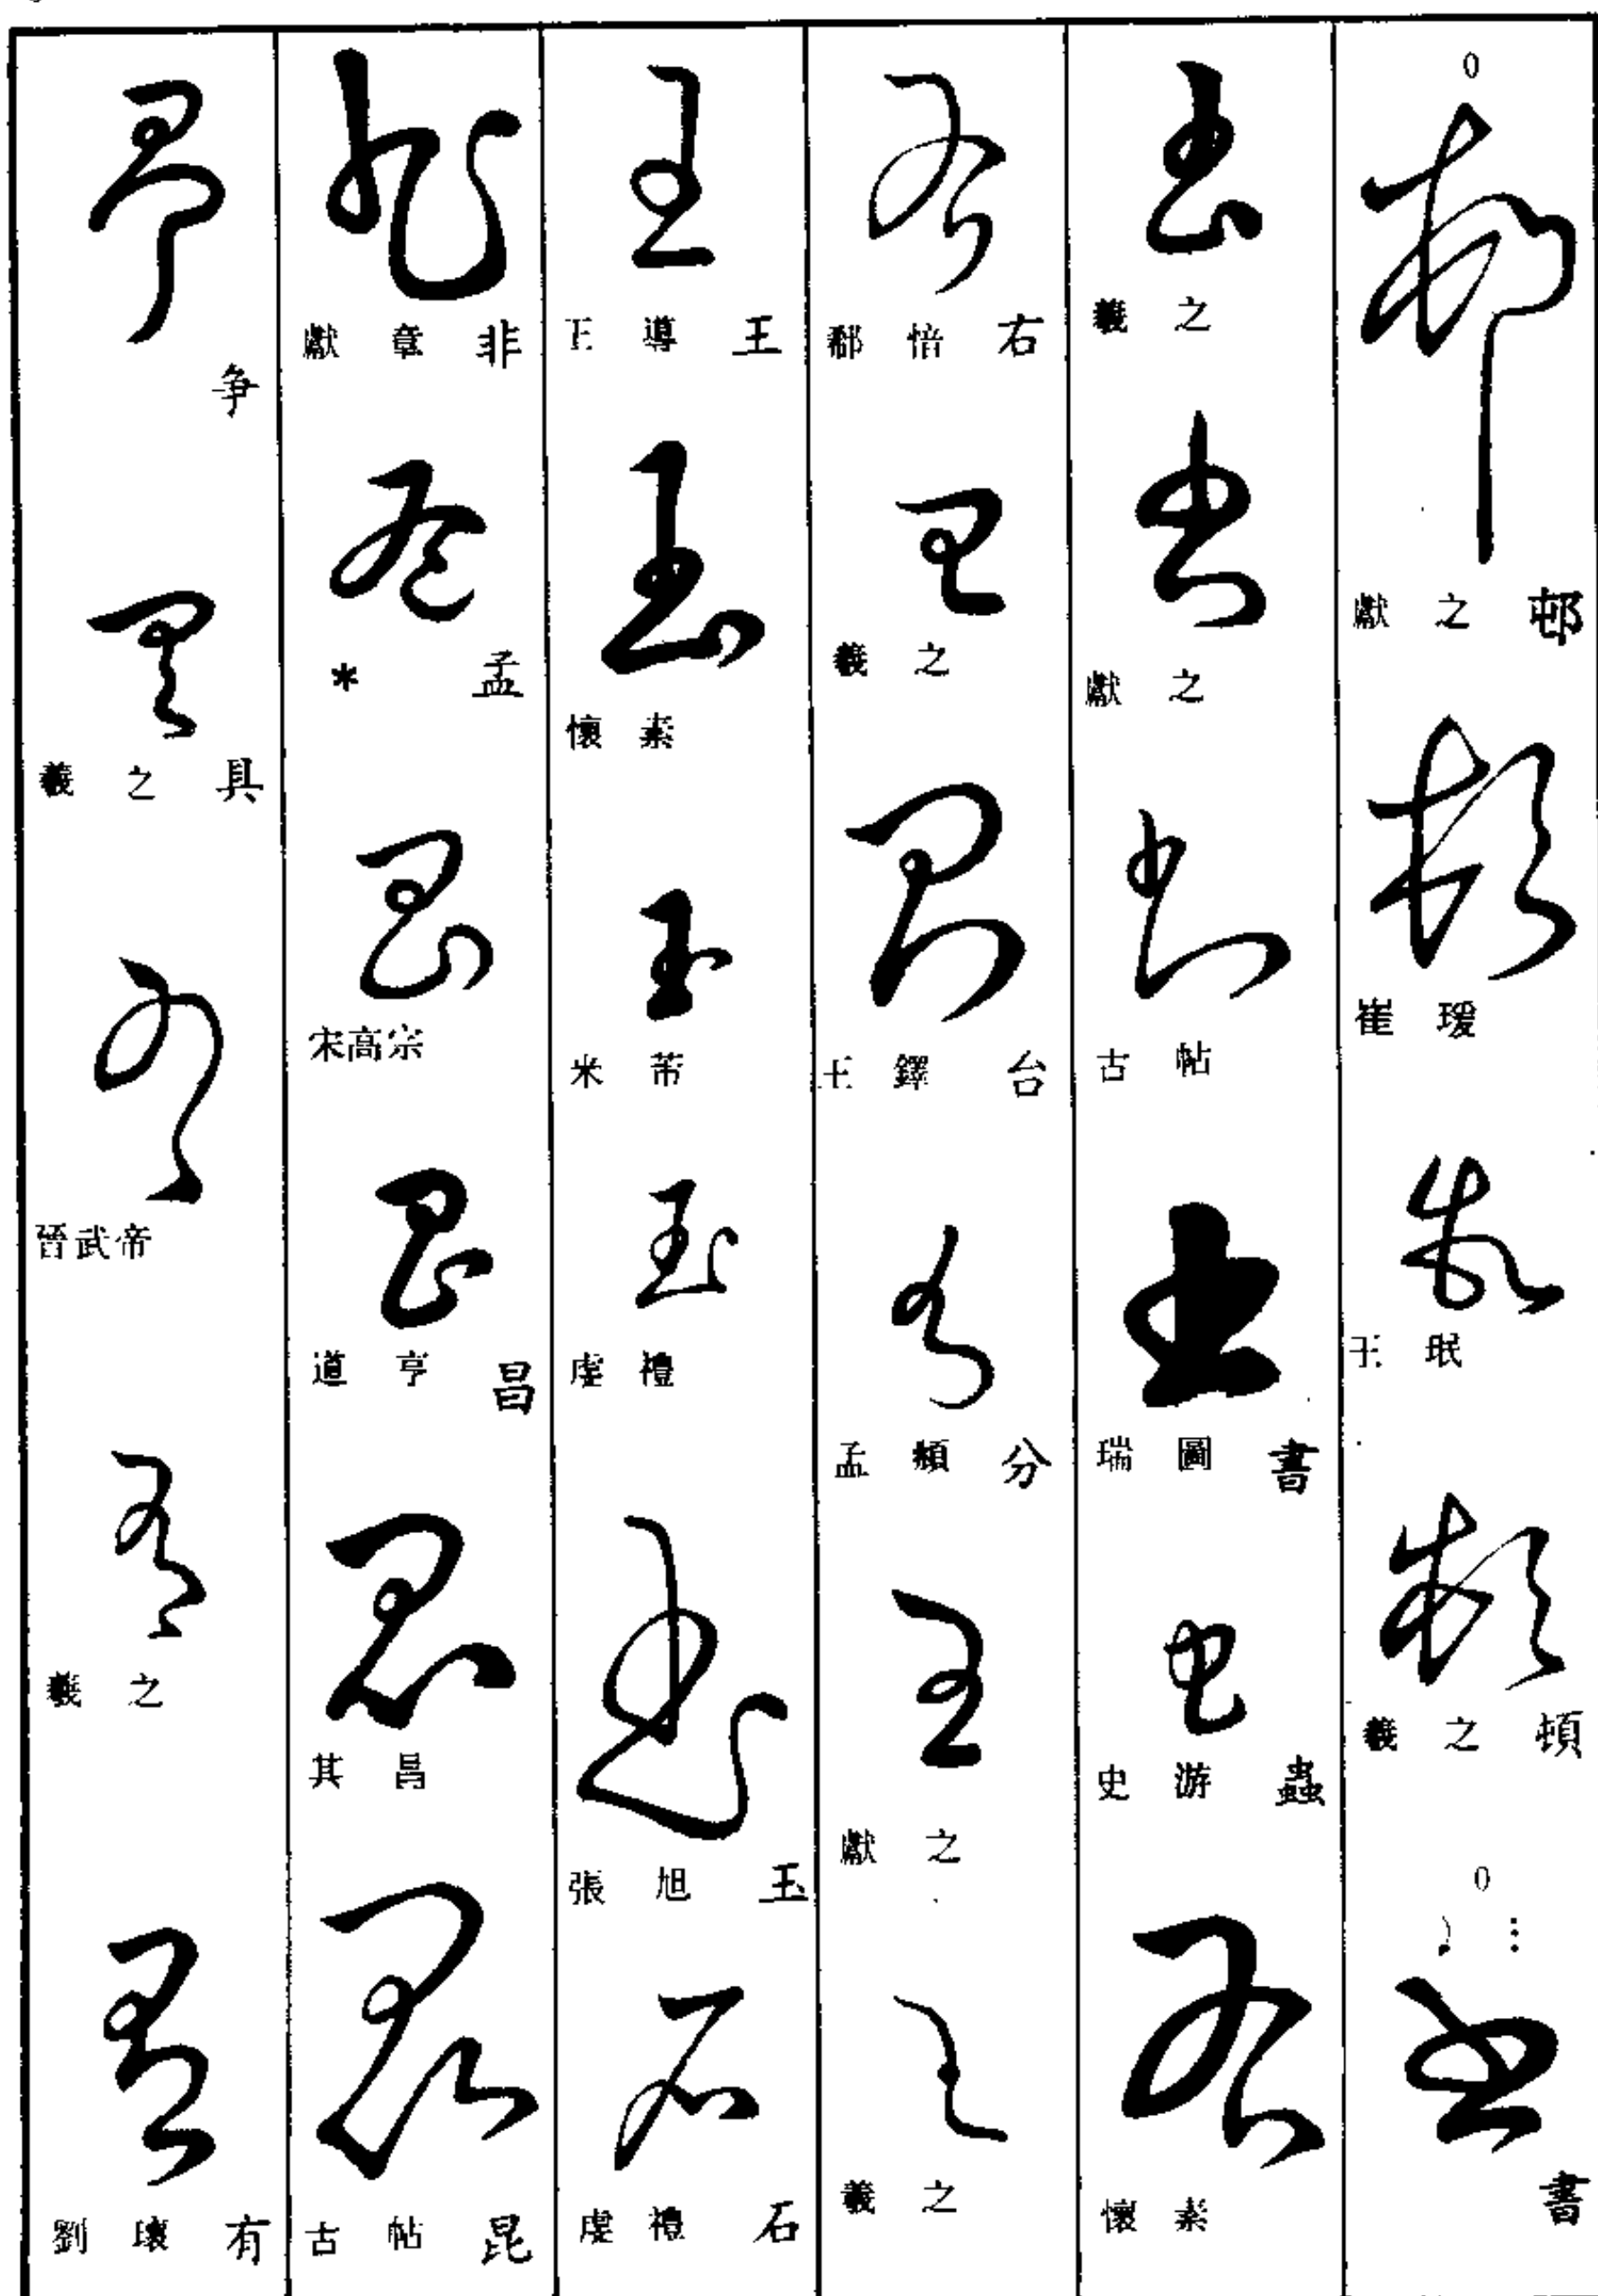 獻之 邨
崔瑗
王珉
羲之 頓
書
羲之
獻之
古帖
瑞圖 書
史游 蟲
懷素
郗愔 右
羲之
王鐸 台
孟頫 分
獻之
羲之
王導 王
懷素
米芾
虔禮
張旭 玉
虔禮 石
獻章 非
* 孟
宋高宗
道亨 昌
其昌
古帖 昆
争
羲之 具
晉武帝
羲之
劉瓌 有